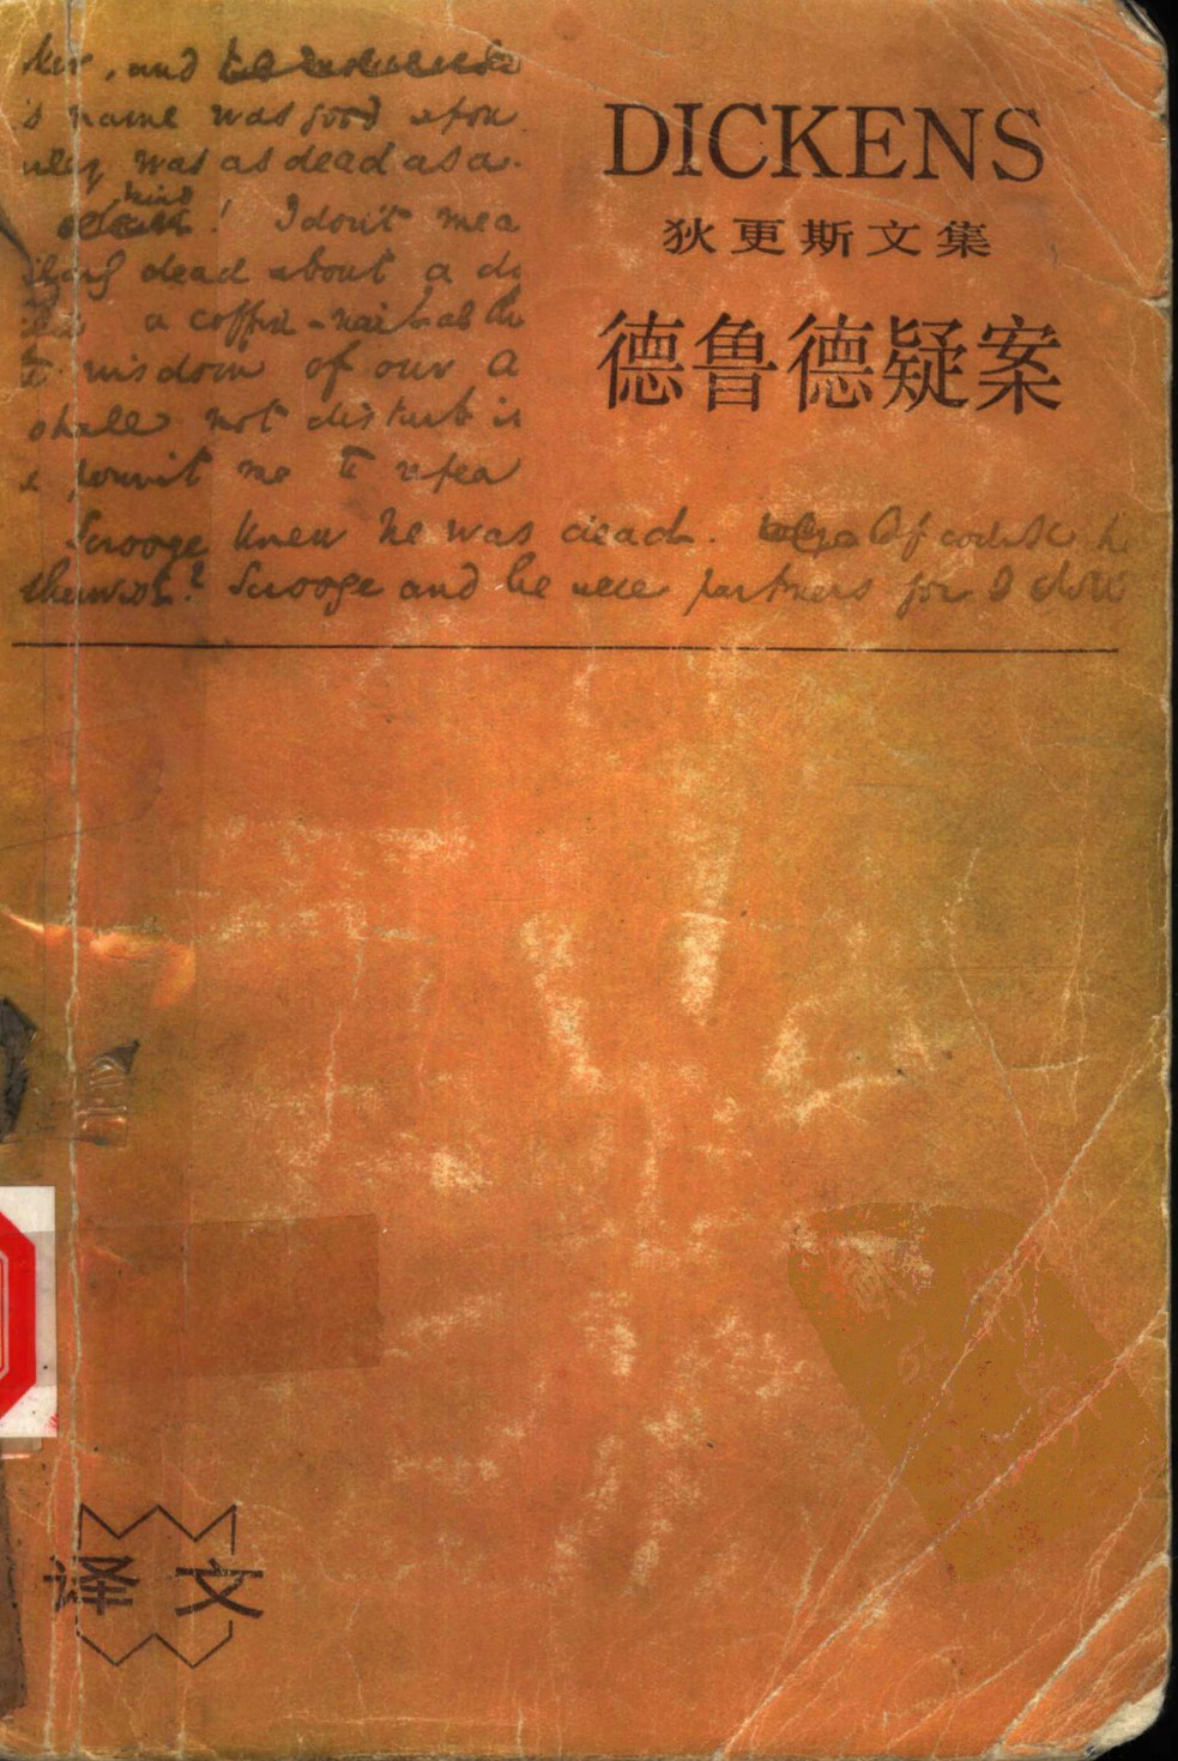 , and
name was good upon
was as dead as a
mind
! I don't mea
dead about a do
a coffin-nail as th
wisdom of our a
shall not disturb i
permit me to repea
Scrooge knew he was dead. Of course h
Scrooge and he were partners for I don
DICKENS
狄更斯文集
德鲁德疑案
译文